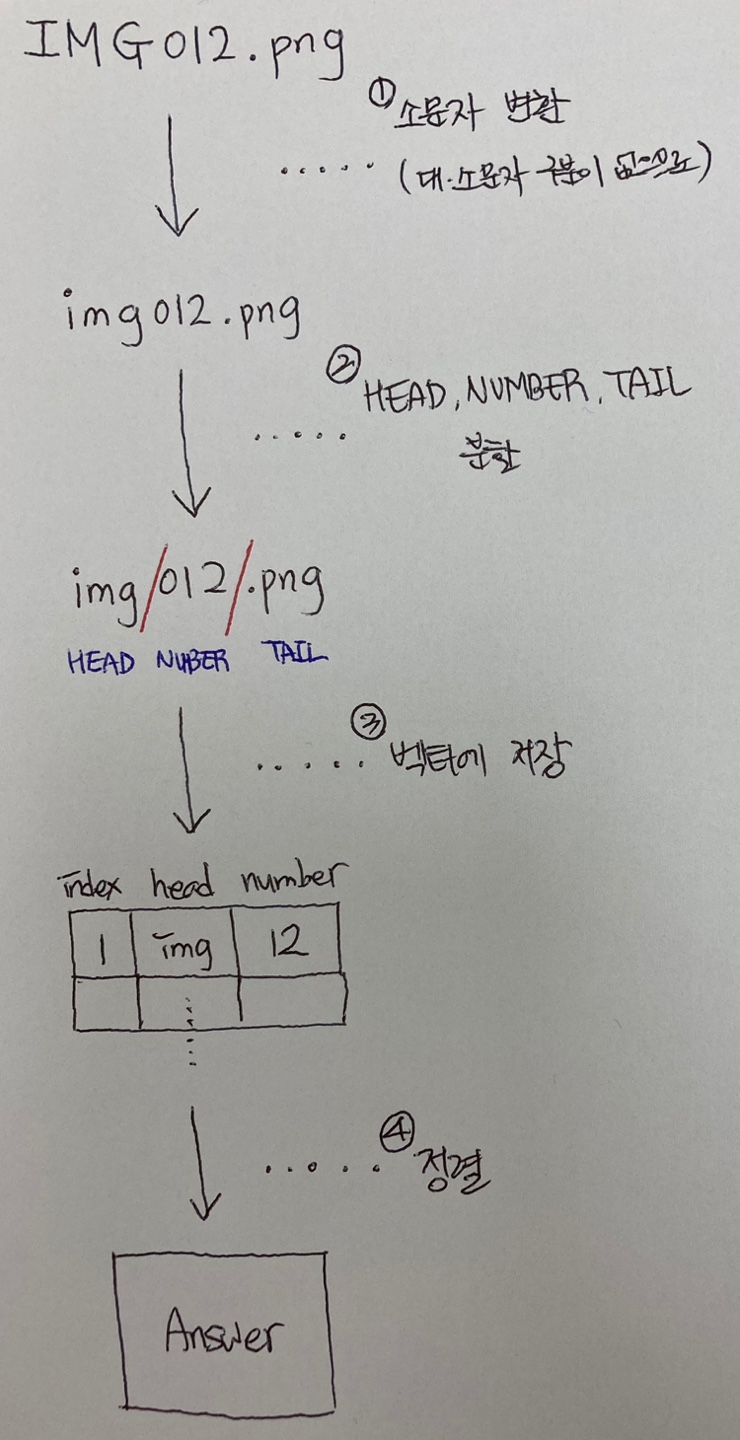 IMG012.png
① 소문자 변환
(대·소문자 구분이 없으므로)
img012.png
② HEAD, NUMBER, TAIL
분할
img/012/.png
HEAD NUBER TAIL
③ 벡터에 저장
index head number
1 img 12
④ 정렬
Answer